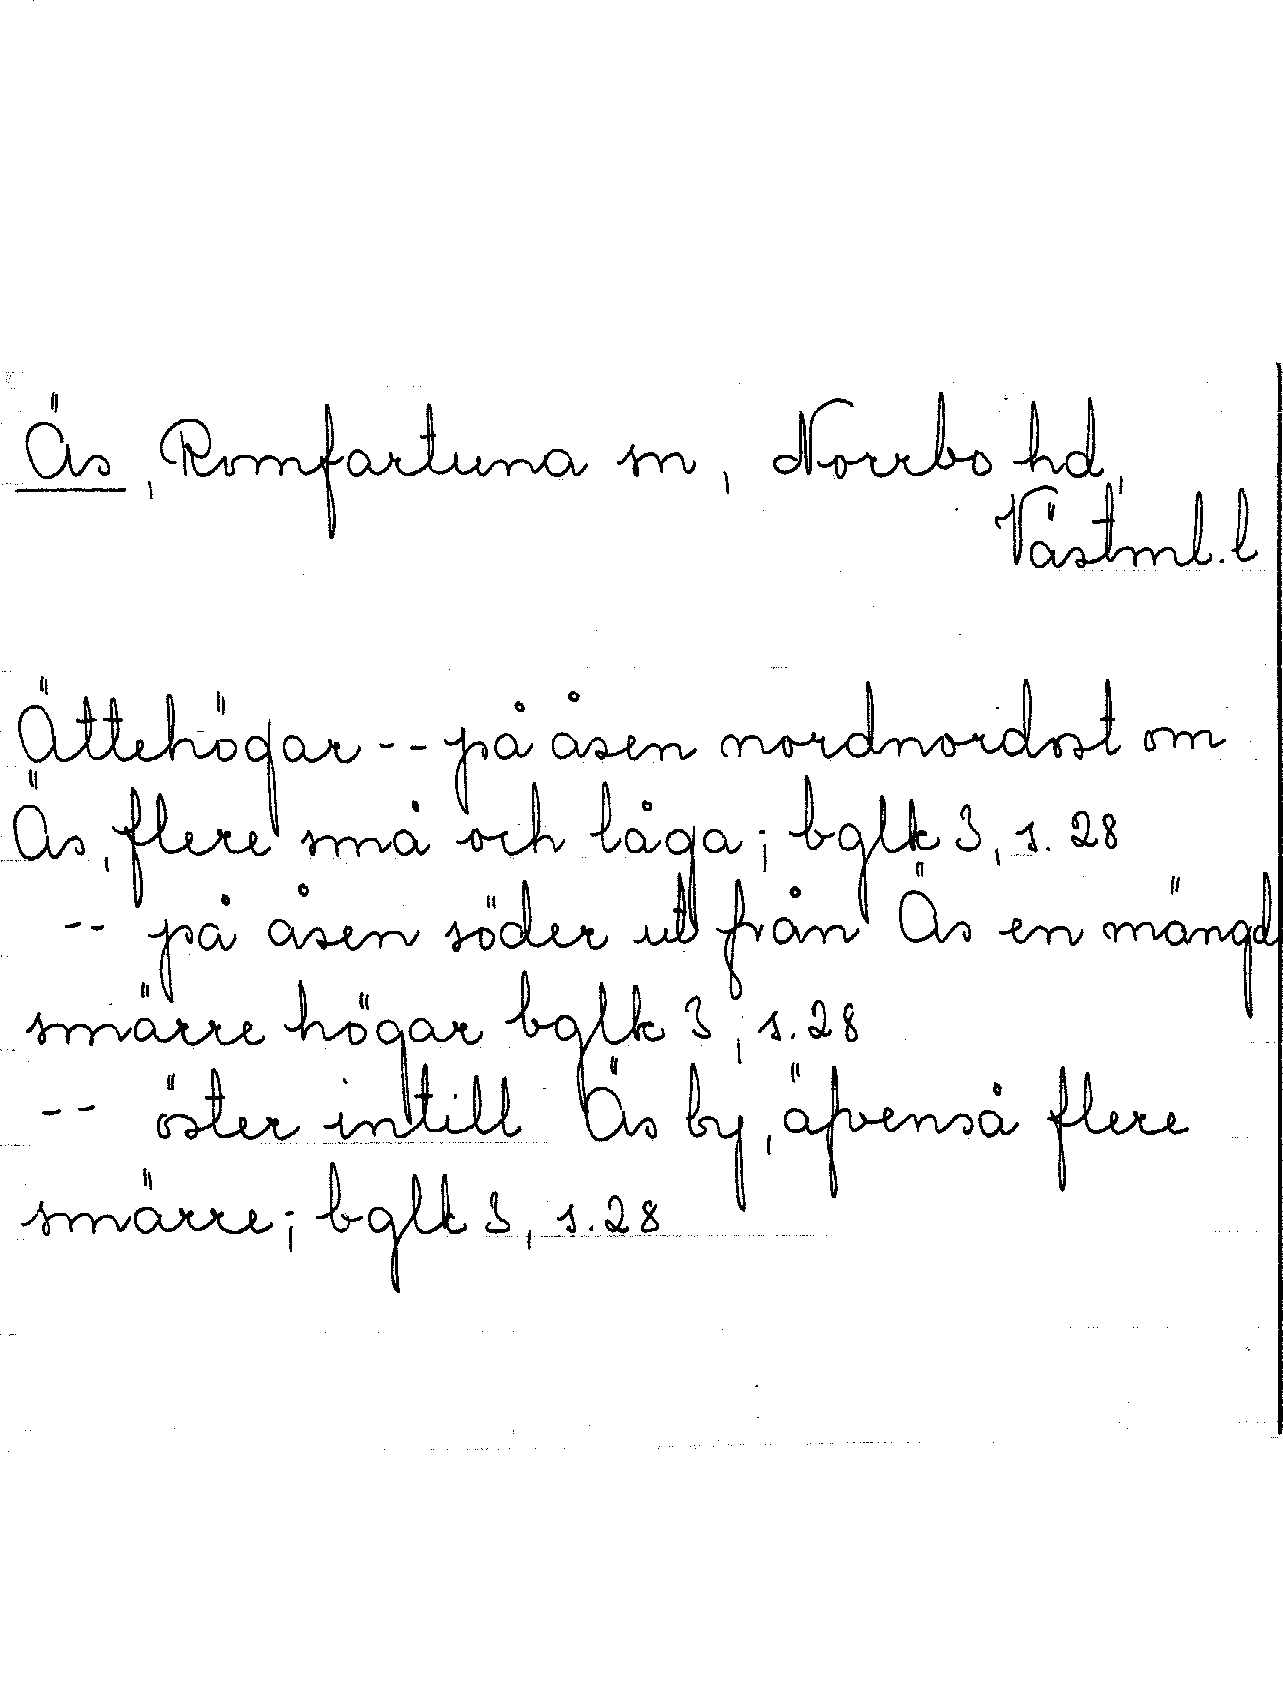 Äs, Romfartuna sn, Norrbo hd,
Västml. l
Ättehögar -- på åsen nordnordost om
Äs, flere små och låga; bglk 3, s. 28
-- på åsen söder ut från Äs en mängd
smärre högar bglk 3, s. 28
-- öster intill Äs by, äfvenså flere
smärre; bglk 3, s. 28